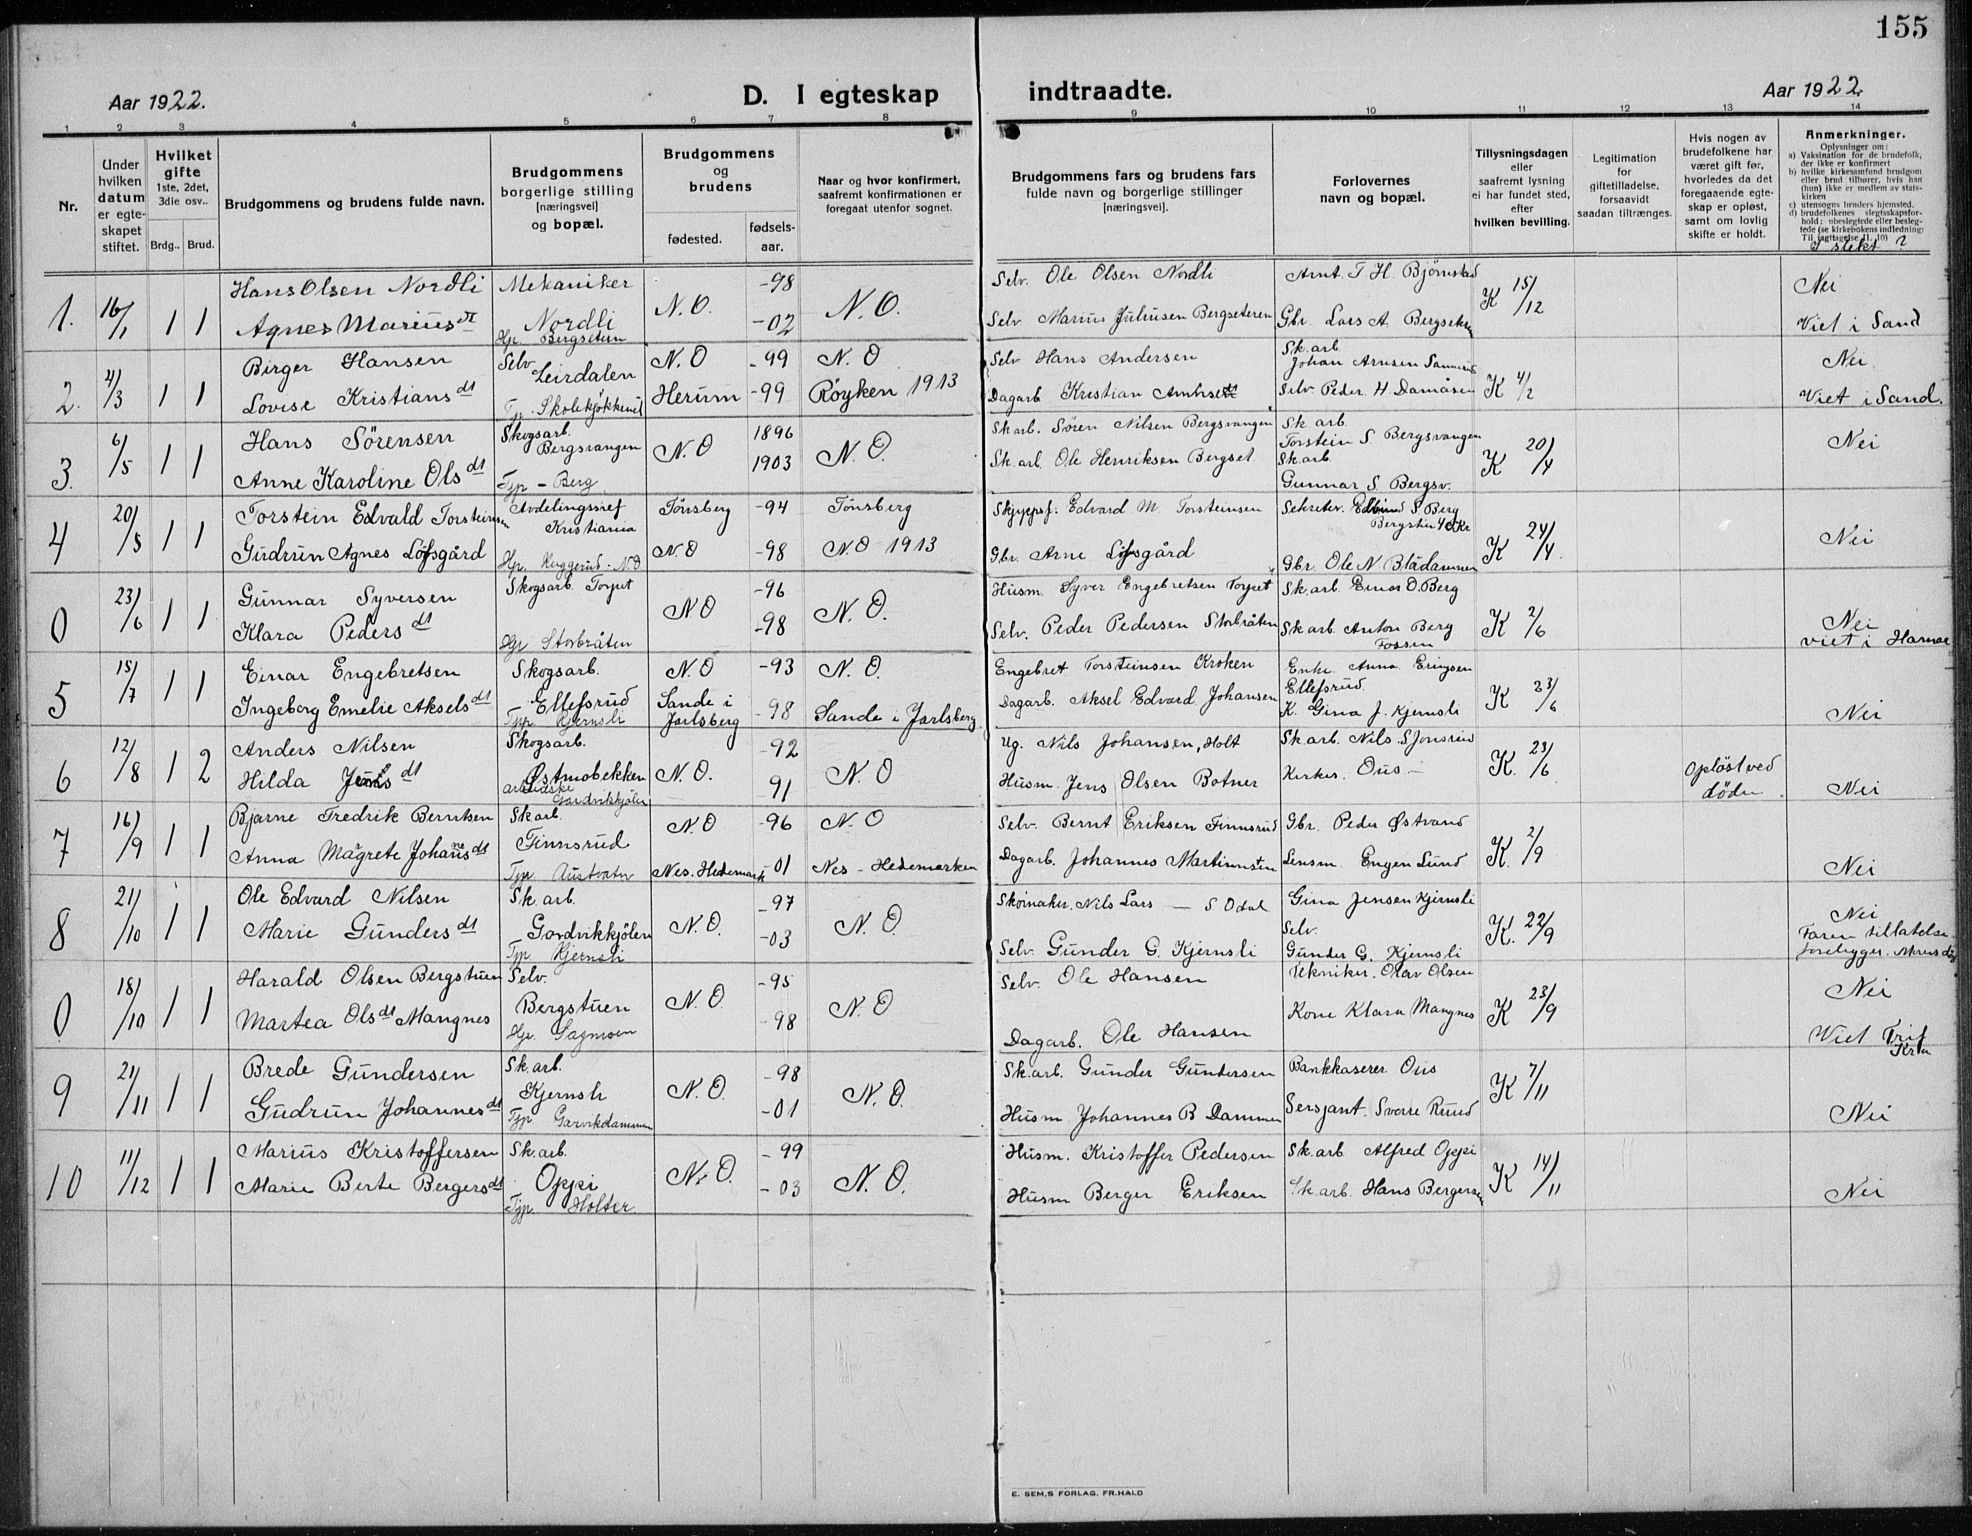 155
Aar 1922.
D. I egteskap indtraadte.
Aar 1922.
1 2 3 4 5 6 7 8 9 10 11 12 13 14
Nr.
Under hvilken datum er egteskapet stiftet.
Hvilket gifte
1ste, 2det, 3die osv..
Brdg.. Brud.
Brudgommens og brudens fulde navn.
Brudgommens borgerlige stilling [næringsvei] og bopæl.
Brudgommens og brudens
fødested.
fødsels-aar.
Naar og hvor konfirmert, saafremt konfirmationen er foregaat utenfor sognet.
Brudgommens fars og brudens fars fulde navn og borgerlige stillinger [næringsvei].
Forlovernes navn og bopæl.
Tillysningsdagen eller saafremt lysning ei har fundet sted, efter hvilken bevilling.
Legitimation for giftetilladelse, forsaavidt saadan tiltrænges.
Hvis nogen av brudefolkene har været gift før, hvorledes da det foregaaende egteskap er opløst, samt om lovlig skifte er holdt.
Anmerkninger.
Oplysninger om:
a) Vaksination for de brudefolk, der ikke er konfirmert
b) hvilke kirkesamfund brudgom eller brud tilhører, hvis han (hun) ikke er medlem av statskirken
c) utensogns bruders hjemsted.
d) brudefolkenes slegtsskapsforhold: ubeslegtede eller beslegtede (se kirkebokens indledning: Til iagttagelse 11, 10)
I slekt?
1. 16/1 1 1 Hans Olsen Nordli Mekaniker N.O. -98 N.O. Selv. Ole Olsen Nordli Arnt T H. Bjørnstad K 15/12 Nei
Agnes Mariusdt Nordli Hp. Bergsetern -02 Selv Marius Juliusen Bergseteren Gbr. Lars A. Viet i Sand
2. 4/3 1 1 Birger Hansen Selv Leirdalen N.O -99 N.O Selv Hans Andersen Sk.arb. Johan Arnsen K 4/2 Nei
Lovise Kristiansdt Herum -99 Røyken 1913 Dagarb Kristian Selv Peder H Damåsen Viet i Sand.
3. 6/5 1 1 Hans Sørensen Skogsarb. Bergsvangen N.O 1896 N.O. Skarb. Søren Nilsen Bergsvangen Sk arb. Torstein S Bergsvangen K 20/4 Nei
Anne Karoline Olsdt Tjp - Berg 1903 Sk.arb. Ole Henriksen Bergset Sk.arb. Gunnar S. Bergsv.
4 20/5 1 1 Torstein Edvald Torsteinsen Kristiania Tønsberg -94 Tønsberg Edvard M Torsteinsen Sekretær. S Berg K 24/4 Nei
Gudrun Agnes Løfsgård Hp. Ruggerud - N.O N.O -98 N.O 1913 Gbr. Arne Løfsgård Gbr. Ole N Blådammen
0 23/6 1 1 Gunnar Syversen Skogsarb. Torpet N.O -96 N.O. Husm. Syver Engebretsen Torpet Sk.arb. Einar O. Berg K 2/6 Nei
Klara Pedersdt Hp Storbråten -98 Selv. Peder Pedersen Storbråten Sk.arb. Anton Berg Fossen viet i Hamar
5 15/7 1 1 Einar Engebretsen Skogsarb. N.O -93 N.O. Engebret Torsteinsen Kroken Enke Anna Eringsen Ellefsrud. K 23/6
Ingeborg Emelie Akselsdt Ellefsrud Tjp Kjernsli Sande i Jarlsberg -98 Sande i Jarlsberg Dagarb. Aksel Edvard Johansen K. Gina J. Kjernsli Nei
6 12/8 1 2 Anders Nilsen Skogsarb. N.O. -92 N.O Ug. Nils Johansen, Holt Sk.arb. Nils K. 23/6 Opløst ved døden.
Hilda Jensdt Østmobekken Gardvikkjølen 91 Husm. Jens Olsen Botner Kirkes. Ous - Nei
7 16/9 1 1 Bjarne Fredrik Berntsen Sk arb. N.O -96 N.O Selv. Bernt Eriksen Finnsrud Gbr. Peder Østvand K. 2/9
Anna Magrete Johannesdt Finnsrud Tjp. Austvatn Nes. Hedemark -01 Nes - Hedemarken Dagarb. Johannes Martinnsen Lensm. Engen Lund Nei
8 21/10 1 1 Ole Edvard Nilsen Sk.arb. N.O. -97 N.O. Skomaker. Nils Lars - S Odal Gina Jensen Kjernsli K. 22/9 Nei
Marie Gundersdt Gardvikkjølen Tjp Kjernsli -03 Selv. Gunder G. Kjernsli Selv. Gunder G. Kjernsli Faren tillatelse foreligger.
0 18/10 1 1 Harald Olsen Bergstuen Selv. N.O. -95 N.O Selv. Ole Hansen Tekniker. Olav Olsen K 23/9 Nei
Martea Olsdt Mangnes Bergstuen Hp. Sagmoen -98 Dagarb. Ole Hansen Kone Klara Mangnes Viet Trif Kr.a
9 21/11 1 1 Brede Gundersen Sk.arb. N.O. -98 N.O. Sk.arb. Gunder Gundersen Bankkaserer Ous K 7/11
Gudrun Johannesdt Kjernsli Tjp Garvikdammen -01 Husm Johannes B Dammen Sersjant. Sverre Ruud Nei
10 11/12 1 1 Marius Kristoffersen Sk.arb. N.O. -99 N.O. Husm. Kristoffer Pedersen Sk.arb Alfred Oppi K 14/11
Marie Berte Bergersdt Oppi Tjp. Holter -03 Husm Berger Eriksen Sk.arb. Hans Bergersen Nei
E. SEM,S FORLAG, FR.HALD